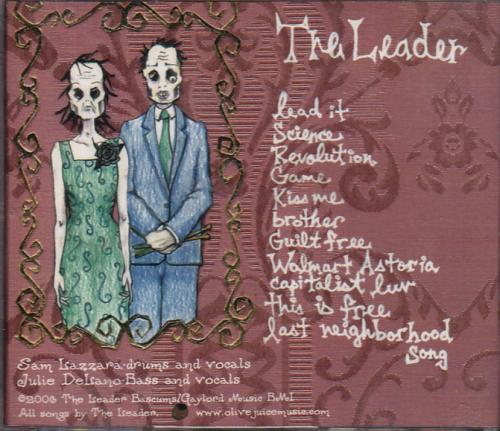 The Leader
lead it
Science
Revolution
Game
Kiss me
brother
Guilt free
Walmart Astoria
capitalist luv
this is free
last neighborhood
Song
Sam Lazzara-drums and vocals
Julie DeLano-Bass and vocals
©2006 The Leader Bascums/Gaylord Music BMI
All songs by The Leader. www.olivejuicemusic.com